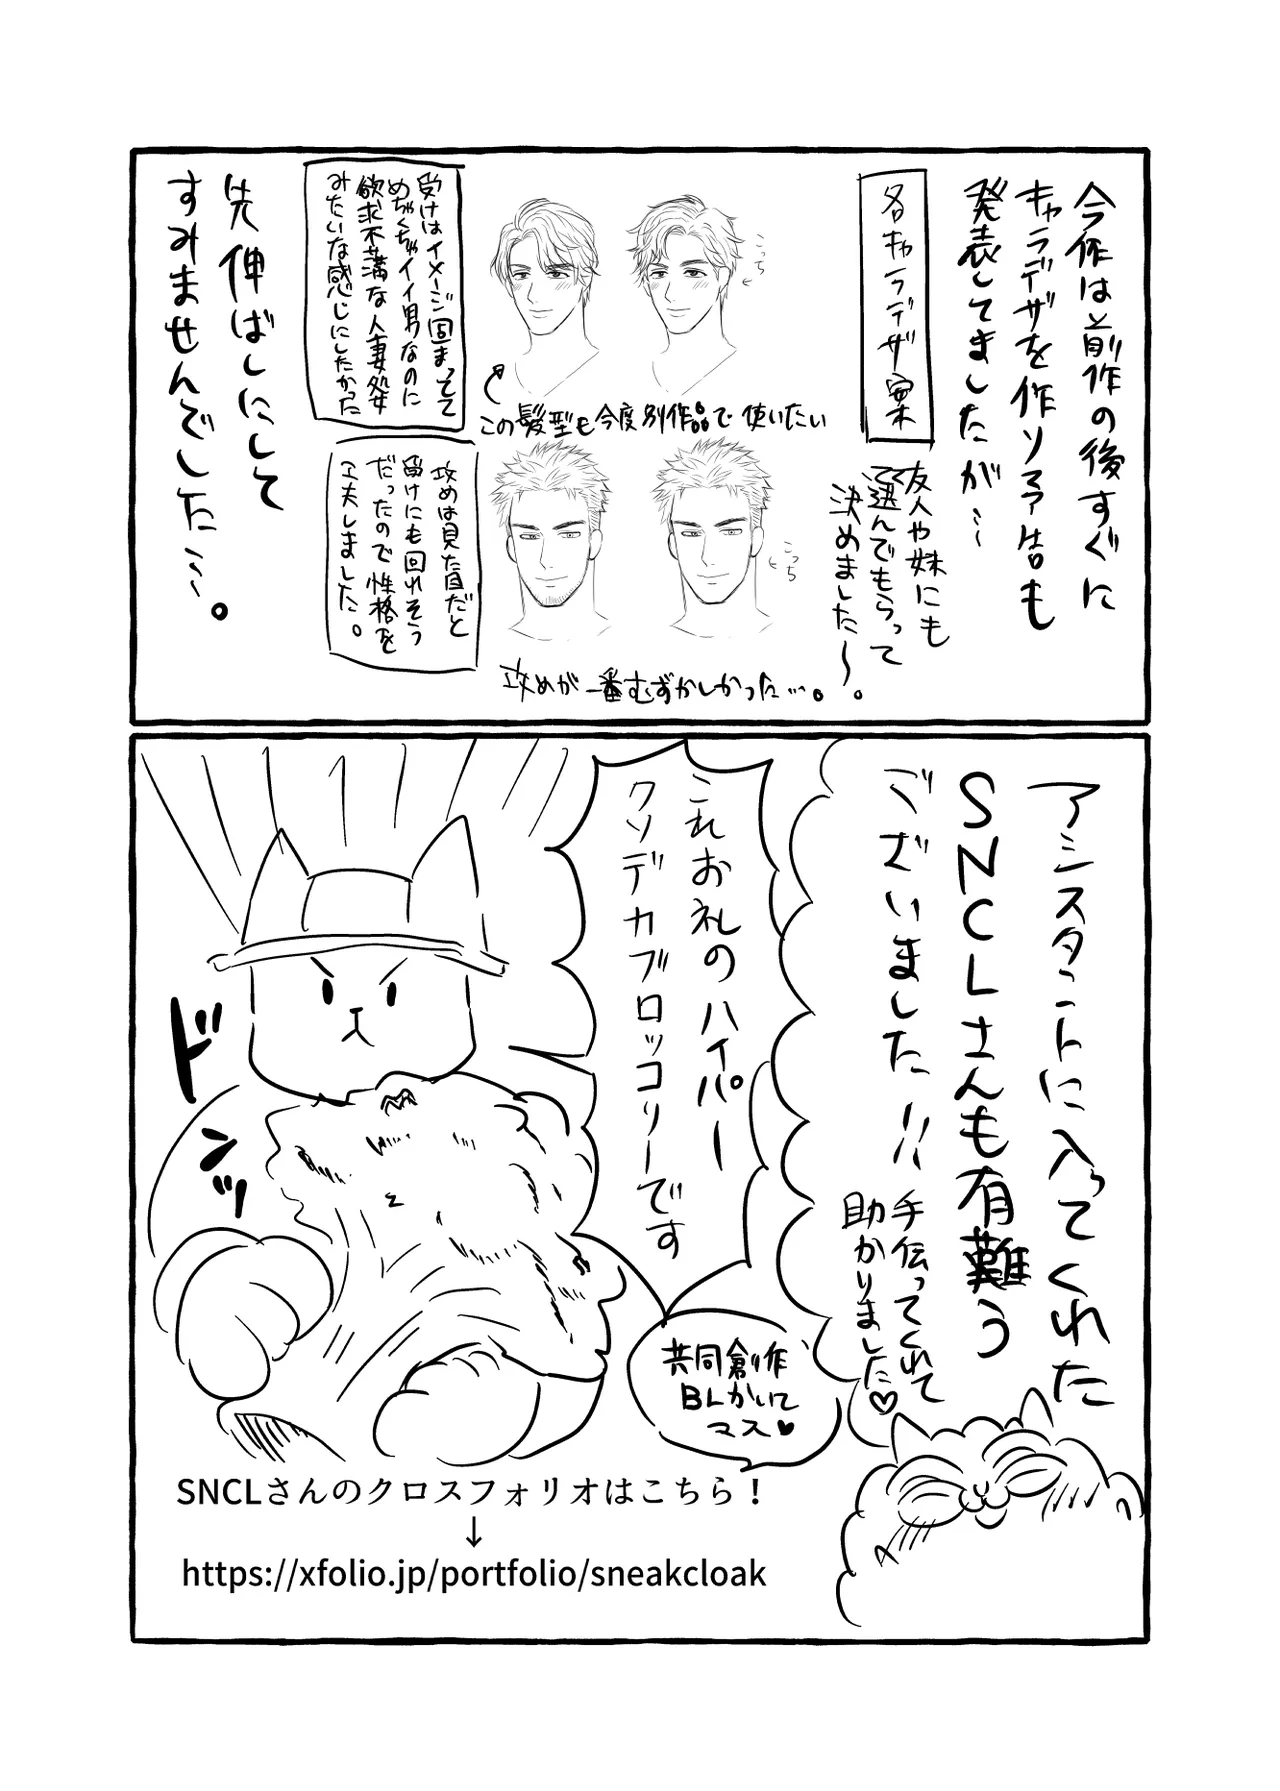 今作は前作の後すぐに
キャラデザを作り予告も
発表してましたが…
各キャラデザ案
友人や妹にも
選んでもらって
決めました〜。
こっち
この髪型も今度別作品で使いたい
受けはイメージ固まってて
めちゃくちゃイイ男なのに
欲求不満な人妻処女
みたいな感じにしたかった
こっち
攻めは見た目だと
受けにも回れそう
だったので性格を
工夫しました。
攻めが一番むずかしかった…。
先伸ばしにして
すみませんでした…。
アシスタントに入ってくれた
SNCLさんも有難う
ございました!!
手伝ってくれて
助かりました♡
これお礼のハイパー
クソデカブロッコリーです
ドンッ
共同創作
BLかいて
マス♥
SNCLさんのクロスフォリオはこちら！
↓
https://xfolio.jp/portfolio/sneakcloak